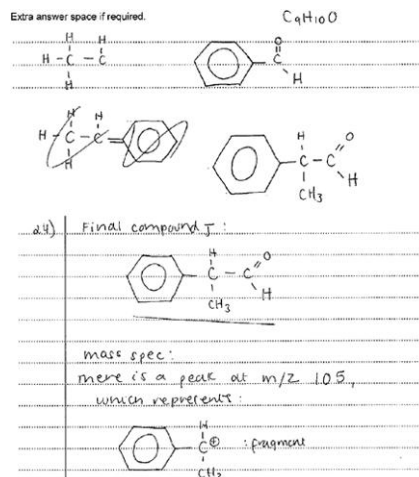 Extra answer space if required.
C9H10O
H H
H - C - C
H
O
C
H
H H
H - C - C
H
H O
C - C
CH3 H
24) Final compound J :
H O
C - C
CH3 H
mass spec :
there is a peak at m/z 105,
which represents :
H
C ⊕ : fragment
CH3